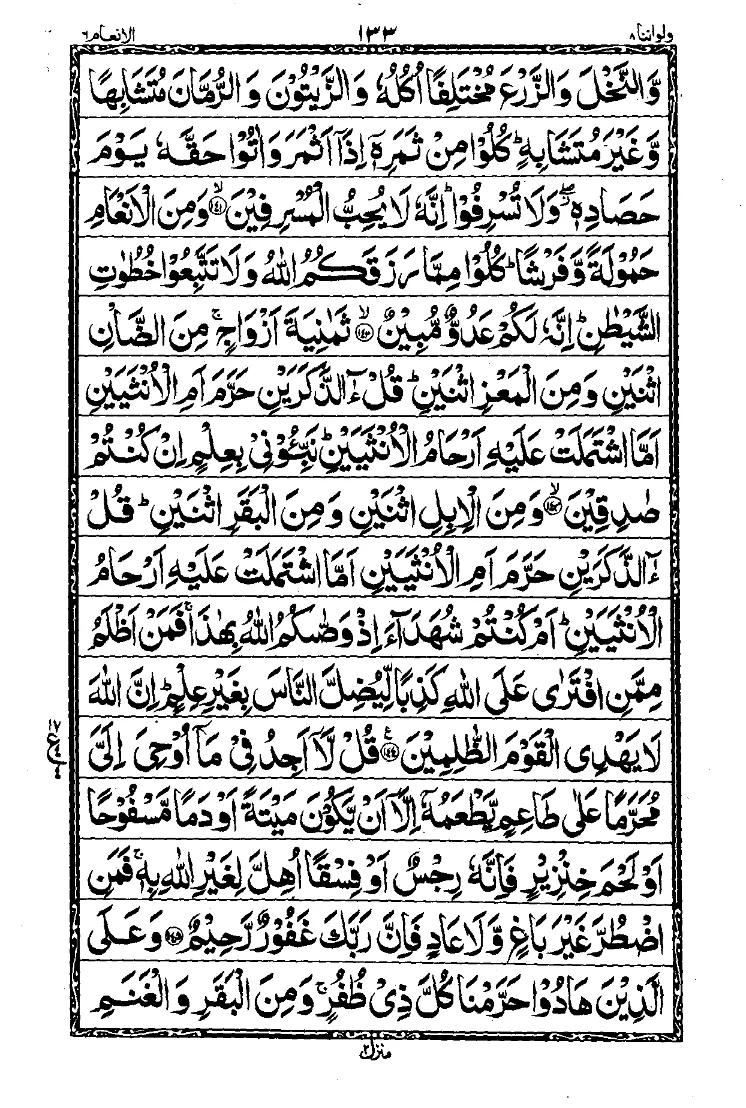 ولواننا ٨ ١٣٣ الانعام ٦
وَّالنَّخْلَ وَالزَّرْعَ مُخْتَلِفًا اُكُلُهٗ وَالزَّيْتُوْنَ وَالرُّمَّانَ مُتَشَابِهًا
وَّغَيْرَ مُتَشَابِهٍ ؕ كُلُوْا مِنْ ثَمَرِهٖۤ اِذَاۤ اَثْمَرَ وَاٰتُوْا حَقَّهٗ يَوْمَ
حَصَادِهٖ ۖ وَلَا تُسْرِفُوْا ؕ اِنَّهٗ لَا يُحِبُّ الْمُسْرِفِيْنَ ۙ﴿۱۴۱﴾ وَمِنَ الْاَنْعَامِ
حَمُوْلَةً وَّفَرْشًا ؕ كُلُوْا مِمَّا رَزَقَكُمُ اللّٰهُ وَلَا تَتَّبِعُوْا خُطُوٰتِ
الشَّيْطٰنِ ؕ اِنَّهٗ لَكُمْ عَدُوٌّ مُّبِيْنٌ ۙ﴿۱۴۲﴾ ثَمٰنِيَةَ اَزْوَاجٍ ۚ مِنَ الضَّاْنِ
اثْنَيْنِ وَمِنَ الْمَعْزِ اثْنَيْنِ ؕ قُلْ ءٰٓالذَّكَرَيْنِ حَرَّمَ اَمِ الْاُنْثَيَيْنِ
اَمَّا اشْتَمَلَتْ عَلَيْهِ اَرْحَامُ الْاُنْثَيَيْنِ ؕ نَبِّـُٔوْنِيْ بِعِلْمٍ اِنْ كُنْتُمْ
صٰدِقِيْنَ ۙ﴿۱۴۳﴾ وَمِنَ الْاِبِلِ اثْنَيْنِ وَمِنَ الْبَقَرِ اثْنَيْنِ ؕ قُلْ
ءٰٓالذَّكَرَيْنِ حَرَّمَ اَمِ الْاُنْثَيَيْنِ اَمَّا اشْتَمَلَتْ عَلَيْهِ اَرْحَامُ
الْاُنْثَيَيْنِ ؕ اَمْ كُنْتُمْ شُهَدَآءَ اِذْ وَصّٰىكُمُ اللّٰهُ بِهٰذَا ۚ فَمَنْ اَظْلَمُ
مِمَّنِ افْتَرٰى عَلَى اللّٰهِ كَذِبًا لِّيُضِلَّ النَّاسَ بِغَيْرِ عِلْمٍ ؕ اِنَّ اللّٰهَ
لَا يَهْدِى الْقَوْمَ الظّٰلِمِيْنَ ﴿۱۴۴﴾ ع قُلْ لَّاۤ اَجِدُ فِيْ مَاۤ اُوْحِيَ اِلَيَّ
مُحَرَّمًا عَلٰى طَاعِمٍ يَّطْعَمُهٗۤ اِلَّاۤ اَنْ يَّكُوْنَ مَيْتَةً اَوْ دَمًا مَّسْفُوْحًا
اَوْ لَحْمَ خِنْزِيْرٍ فَاِنَّهٗ رِجْسٌ اَوْ فِسْقًا اُهِلَّ لِغَيْرِ اللّٰهِ بِهٖ ۚ فَمَنِ
اضْطُرَّ غَيْرَ بَاغٍ وَّلَا عَادٍ فَاِنَّ رَبَّكَ غَفُوْرٌ رَّحِيْمٌ ﴿۱۴۵﴾ وَعَلَى
الَّذِيْنَ هَادُوْا حَرَّمْنَا كُلَّ ذِيْ ظُفُرٍ ۚ وَمِنَ الْبَقَرِ وَالْغَنَمِ
منزل ٢